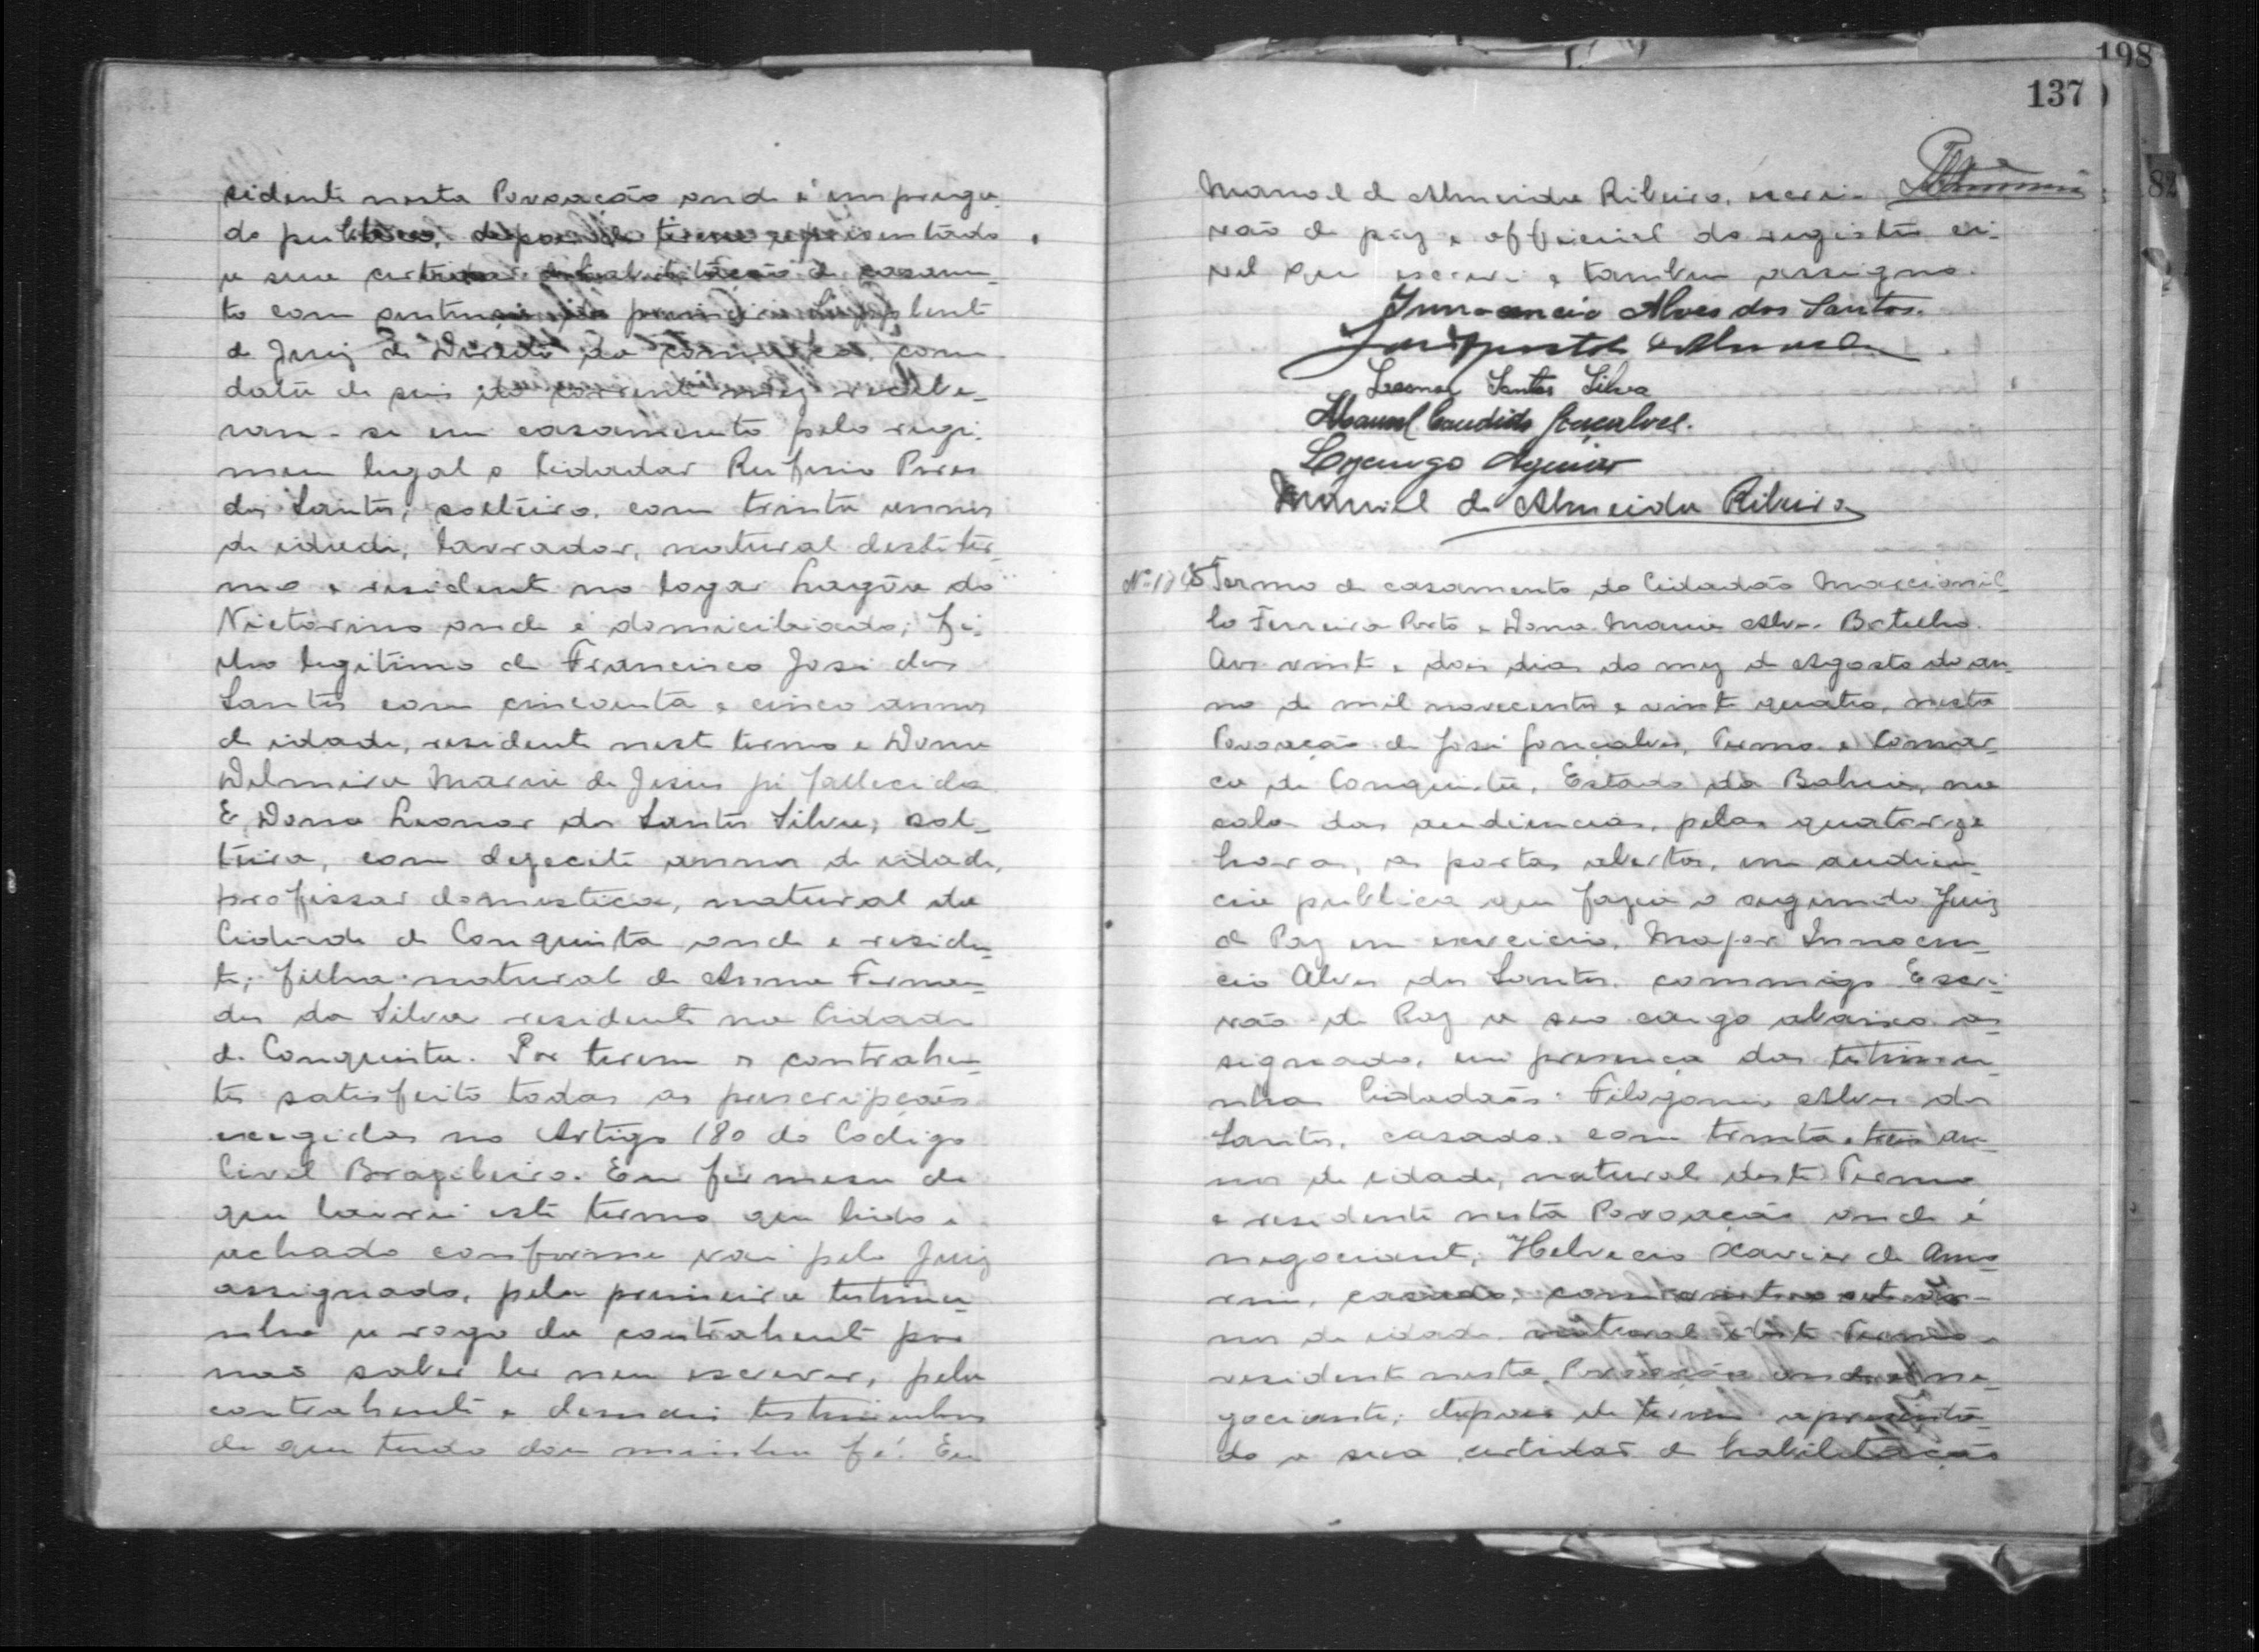 sidente nesta Povoação onde é emprega-
do publico, depois de terem apresentado
a sua certidão de habilitação de casamen-
to com sentença do primeiro Supplente
de Juiz de Direito da comarca, com
data de seis do corrente mez recebe-
ram-se em casamento pelo regi-
men legal o Cidadão Rufino Pires
dos Santos, solteiro, com trinta annos
de idade, lavrador, natural deste ter-
mo e residente no logar Lagôa do
Victorino onde é domiciliado; fi-
lho legitimo de Francisco José dos
Santos com cincoenta e cinco annos
de idade, residente neste termo e Dona
Delmira Maria de Jesus já fallecida
E Dona Leonor dos Santos Silva, sol-
teira, com dezecete annos de idade,
profissão domestica, natural da
Cidade de Conquista onde e residen-
te; filha natural de Anna Fernan-
des da Silva residente na Cidade
de Conquista. Por terem os contrahen-
tes satisfeito todas as prescripções
exegidas no Artigo 180 do Codigo
Civil Brazileiro. Em firmesa do
que lavrei este termo que lido e
achado conforme vai pelo Juiz
assignado, pela primeira testimu-
nha a rogo do contrahente por
não saber ler nem escrever, pela
contrahente e demais testimunhas
de que tudo dou minha fé. Eu
198
137
82
Manoel de Almeida Ribeiro, escri-
vão de paz e official do registro ci-
vil que escrevi e tambem assigno.
Innocencio Alves dos Santos.
Leonor Santos Silva
Manoel Candido Gonçalves.
Lycurgo Aguiar
Manoel de Almeida Ribeiro
Termo de casamento do Cidadão Marcionil-
lo Ferreira Porto e Dona Maria Alves Botelho.
Aos vinte e dois dias do mez de Agosto do an-
no de mil novecentos e vinte quatro, nesta
Povoação de José Gonçalves, Termo e Comar-
ca de Conquista, Estado da Bahia, na
sala das audiencias, pelas quatorze
horas, as portas abertas, em audien-
cia publica que fazia o segundo Juiz
de Paz em exercicio, Major Innocen-
cio Alves dos Santos, commigo Escri-
vão de Paz a seo cargo abaixo as-
signado, em presença das testimu-
nhas Cidadãos: Filogonio Alves dos
Santos, casado, com trinta e tres an-
nos de idade, natural deste Termo
e residente nesta Povoação onde é
negociante; Helvecio Xavier de Amo-
rim, casado, com trinta e sete an-
nos de idade, natural deste Termo e
residente nesta Povoação onde é ne-
gociante; depois de terem apresenta-
do a sua certidão de habilitação